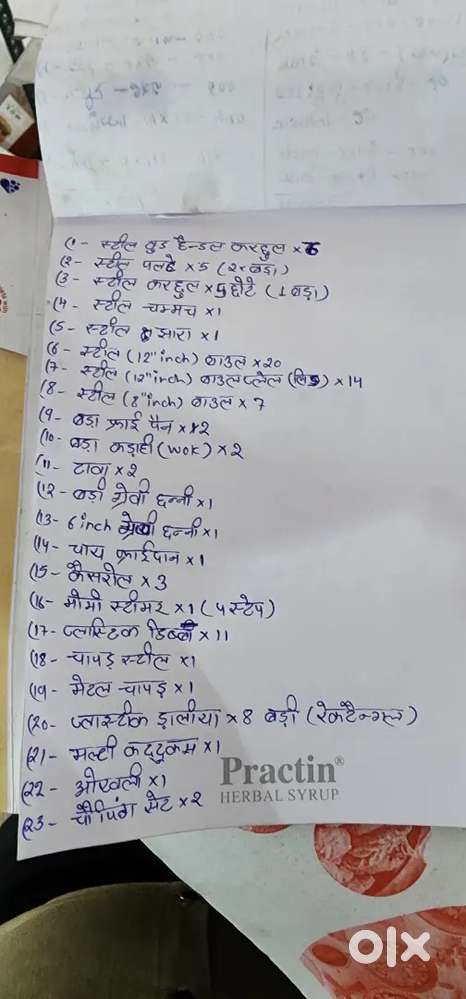 (1- स्टील वुड हैन्डल करछुल ×6
(2- स्टील पलटे ×5 (2× बड़ा)
(3- स्टील करछुल × 5 छोटे (1 बड़ा)
(4- स्टील चम्मच ×1
(5- स्टील झारा ×1
(6- स्टील (12"inch) बाउल ×20
(7- स्टील (12"inch) बाउल प्लेल (लिड) ×14
(8- स्टील (8"inch) बाउल × 7
(9- बड़ा फ्राई पैन ×2
(10- बड़ा कड़ाही (wok) ×2
(11- टावा ×2
(12- बड़ी ग्रेवी छन्नी ×1
(13- 6 inch ग्रेवी छन्नी ×1
(14- चाय फ्राईपान ×1
(15- कैसरोल ×3
(16- मोमो स्टीमर ×1 (4 स्टेप)
(17- प्लास्टिक डिब्बी ×11
(18- चापड़ स्टील ×1
(19- मेटल चापड़ ×1
(20- प्लास्टीक डालीया ×8 बड़ी (रेक्टैन्गल)
(21- मल्टी कद्दूकस ×1
(22- ओखली ×1
(23- चौपिंग सेट ×2
Practin®
HERBAL SYRUP
olx